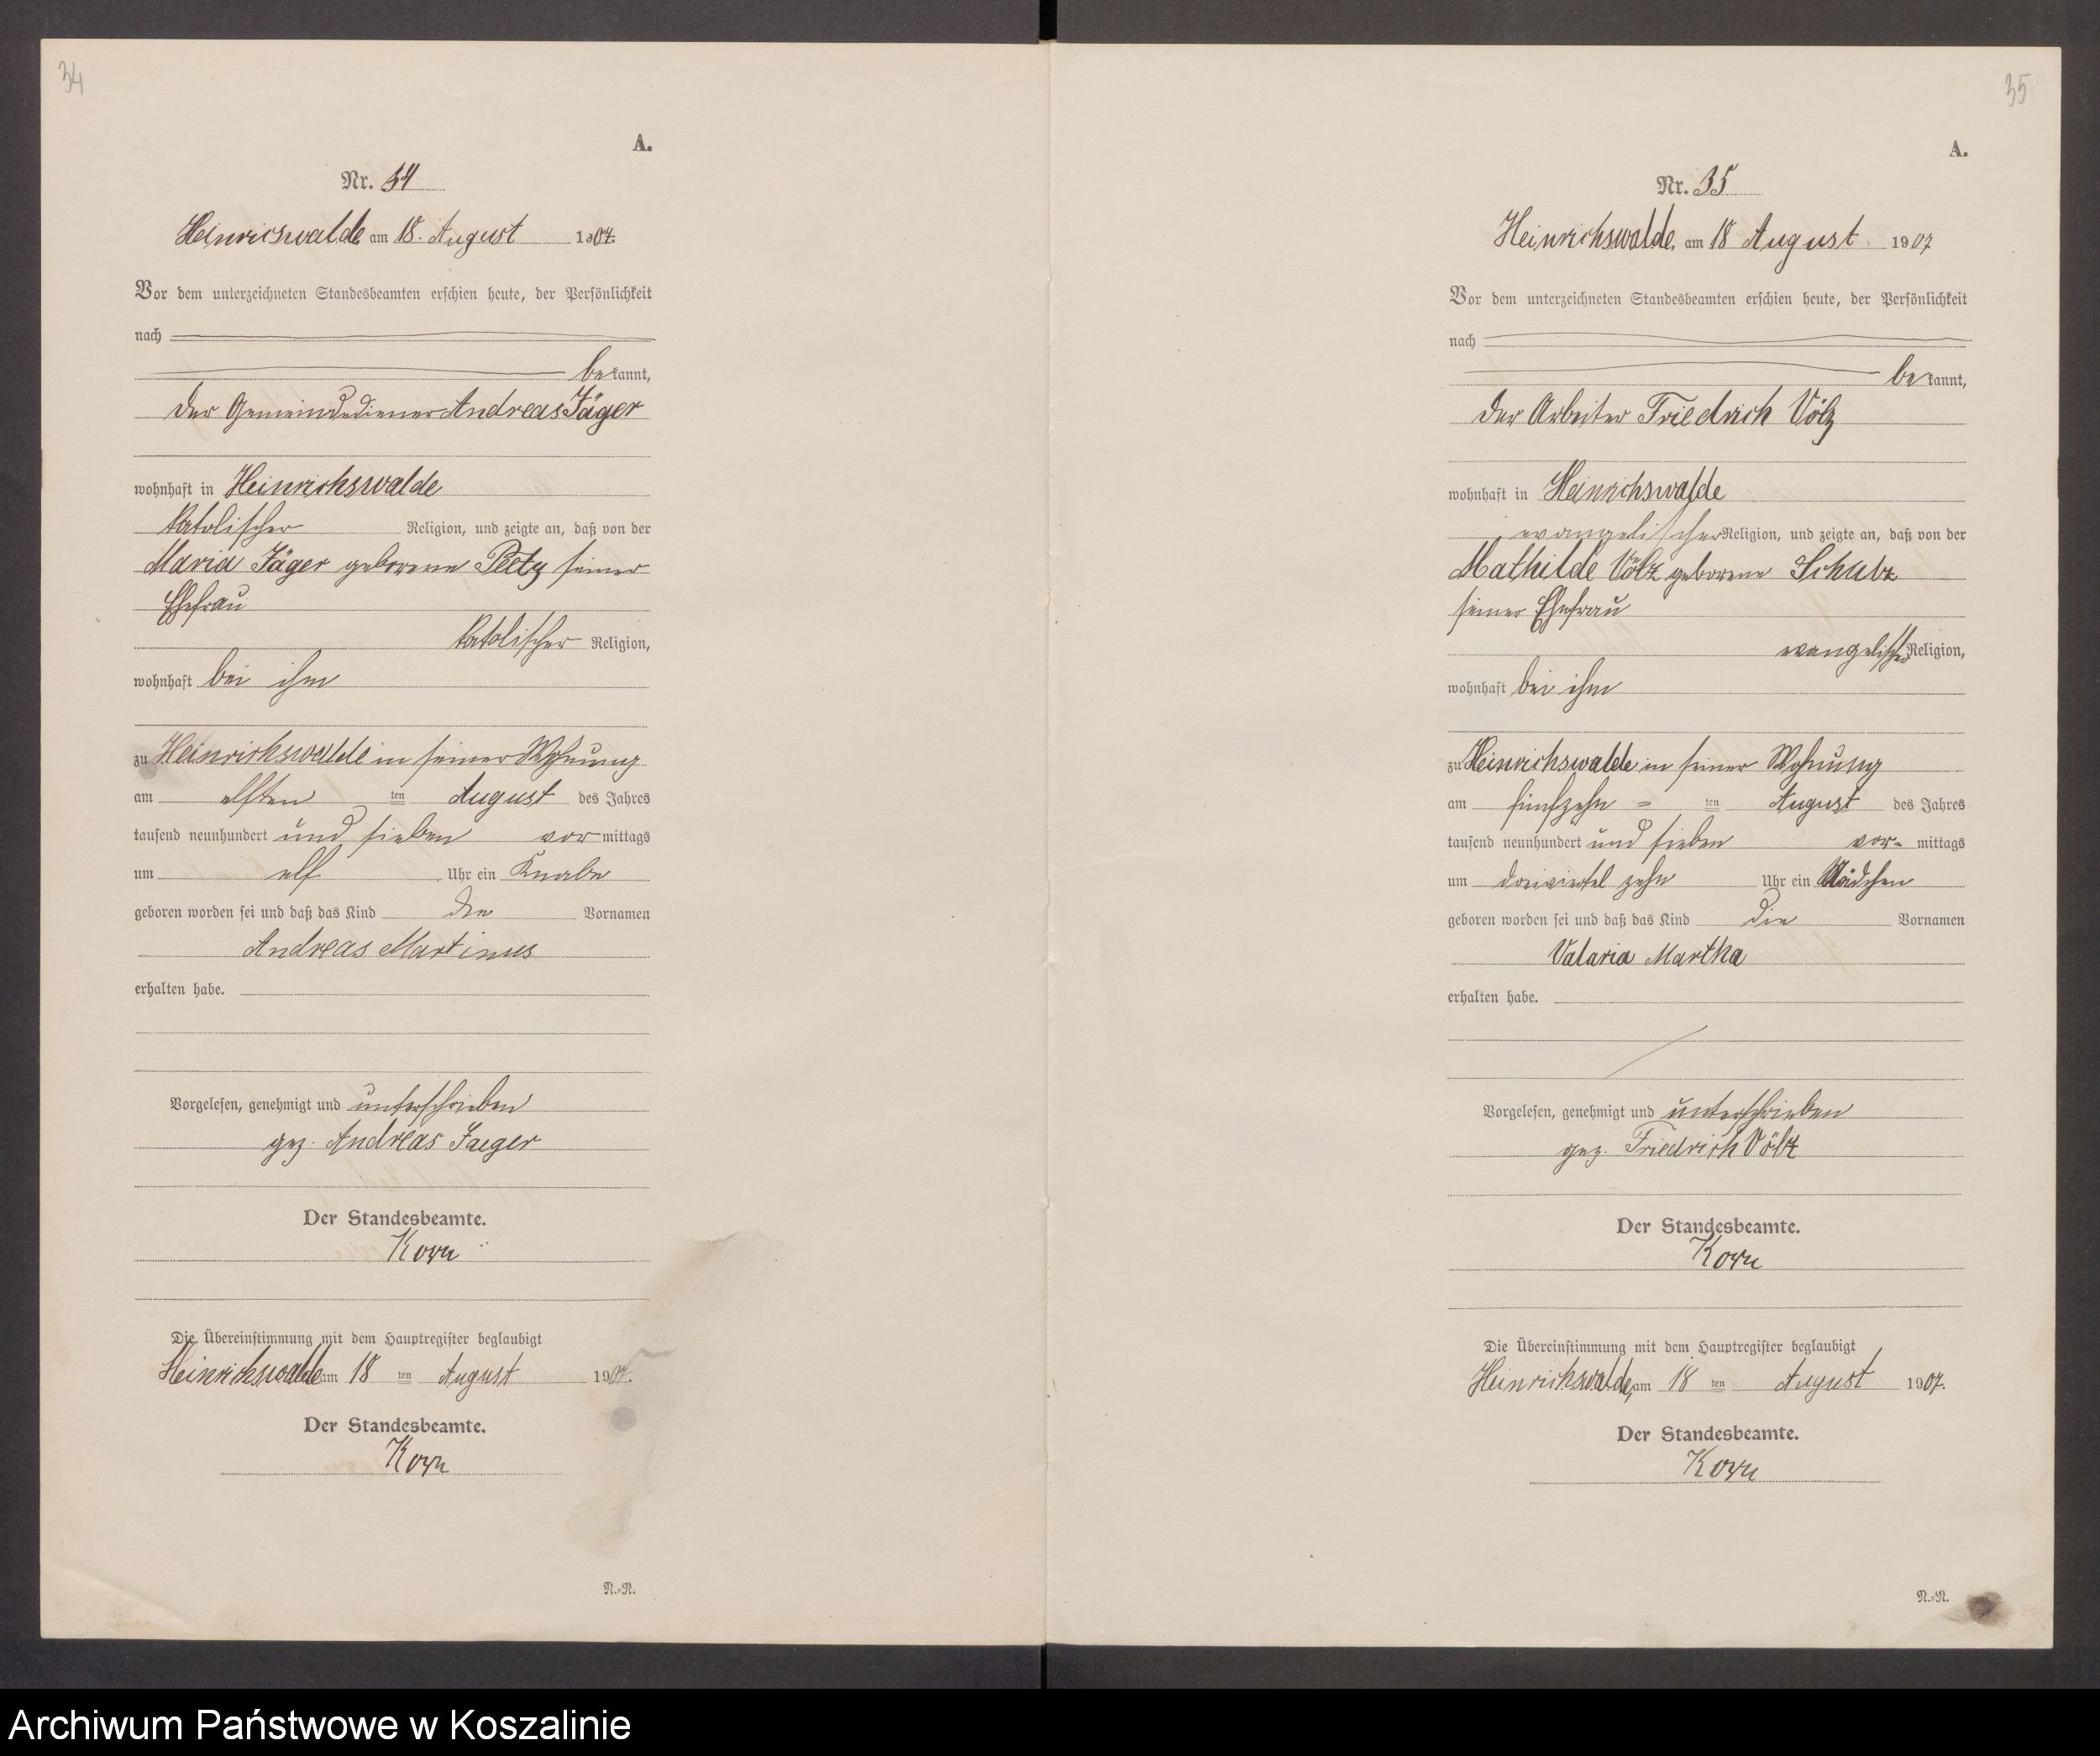 34
A.
Nr. 34
Heinricswalde am 18. August 1907.
Vor dem unterzeichneten Standesbeamten erschien heute, der Persönlichkeit
nach
bekannt,
der Gemeindediener Andreas Jäger
wohnhaft in Heinrichswalde
katolischer Religion, und zeigte an, daß von der
Maria Jäger geborene seiner
Ehefrau
katolischer Religion,
wohnhaft bei ihm
zu Heinrichswalde in seiner Wohnung
am elften ten August des Jahres
tausend neunhundert und sieben vor mittags
um elf Uhr ein Knabe
geboren worden sei und daß das Kind die Vornamen
Andreas Martinus
erhalten habe.
Vorgelesen, genehmigt und unterschrieben
gez. Andreas Jaeger
Der Standesbeamte.
Korn
Die Übereinstimmung mit dem Hauptregister beglaubigt
Heinrichswalde am 18 ten August 1907.
Der Standesbeamte.
Korn
N.=R.
35
A.
Nr. 35
Heinrichswalde, am 18 August 1907
Vor dem unterzeichneten Standesbeamten erschien heute, der Persönlichkeit
nach
bekannt,
der Arbeiter Friedrich Völz
wohnhaft in Heinrichswalde
evangelischer Religion, und zeigte an, daß von der
Mathilde Völz geborene Schulz
seiner Ehefrau
evangelischer Religion,
wohnhaft bei ihm
zu Heinrichswalde in seiner Wohnung
am fünfzehn = ten August des Jahres
tausend neunhundert und sieben vor= mittags
um dreiviertel zehn Uhr ein Mädchen
geboren worden sei und daß das Kind die Vornamen
Valaria Martha
erhalten habe.
Vorgelesen, genehmigt und unterschrieben
gez. Friedrich Völz
Der Standesbeamte.
Korn
Die Übereinstimmung mit dem Hauptregister beglaubigt
Heinrichswalde, am 18 ten August 1907.
Der Standesbeamte.
Korn
N.=R.
Archiwum Państwowe w Koszalinie